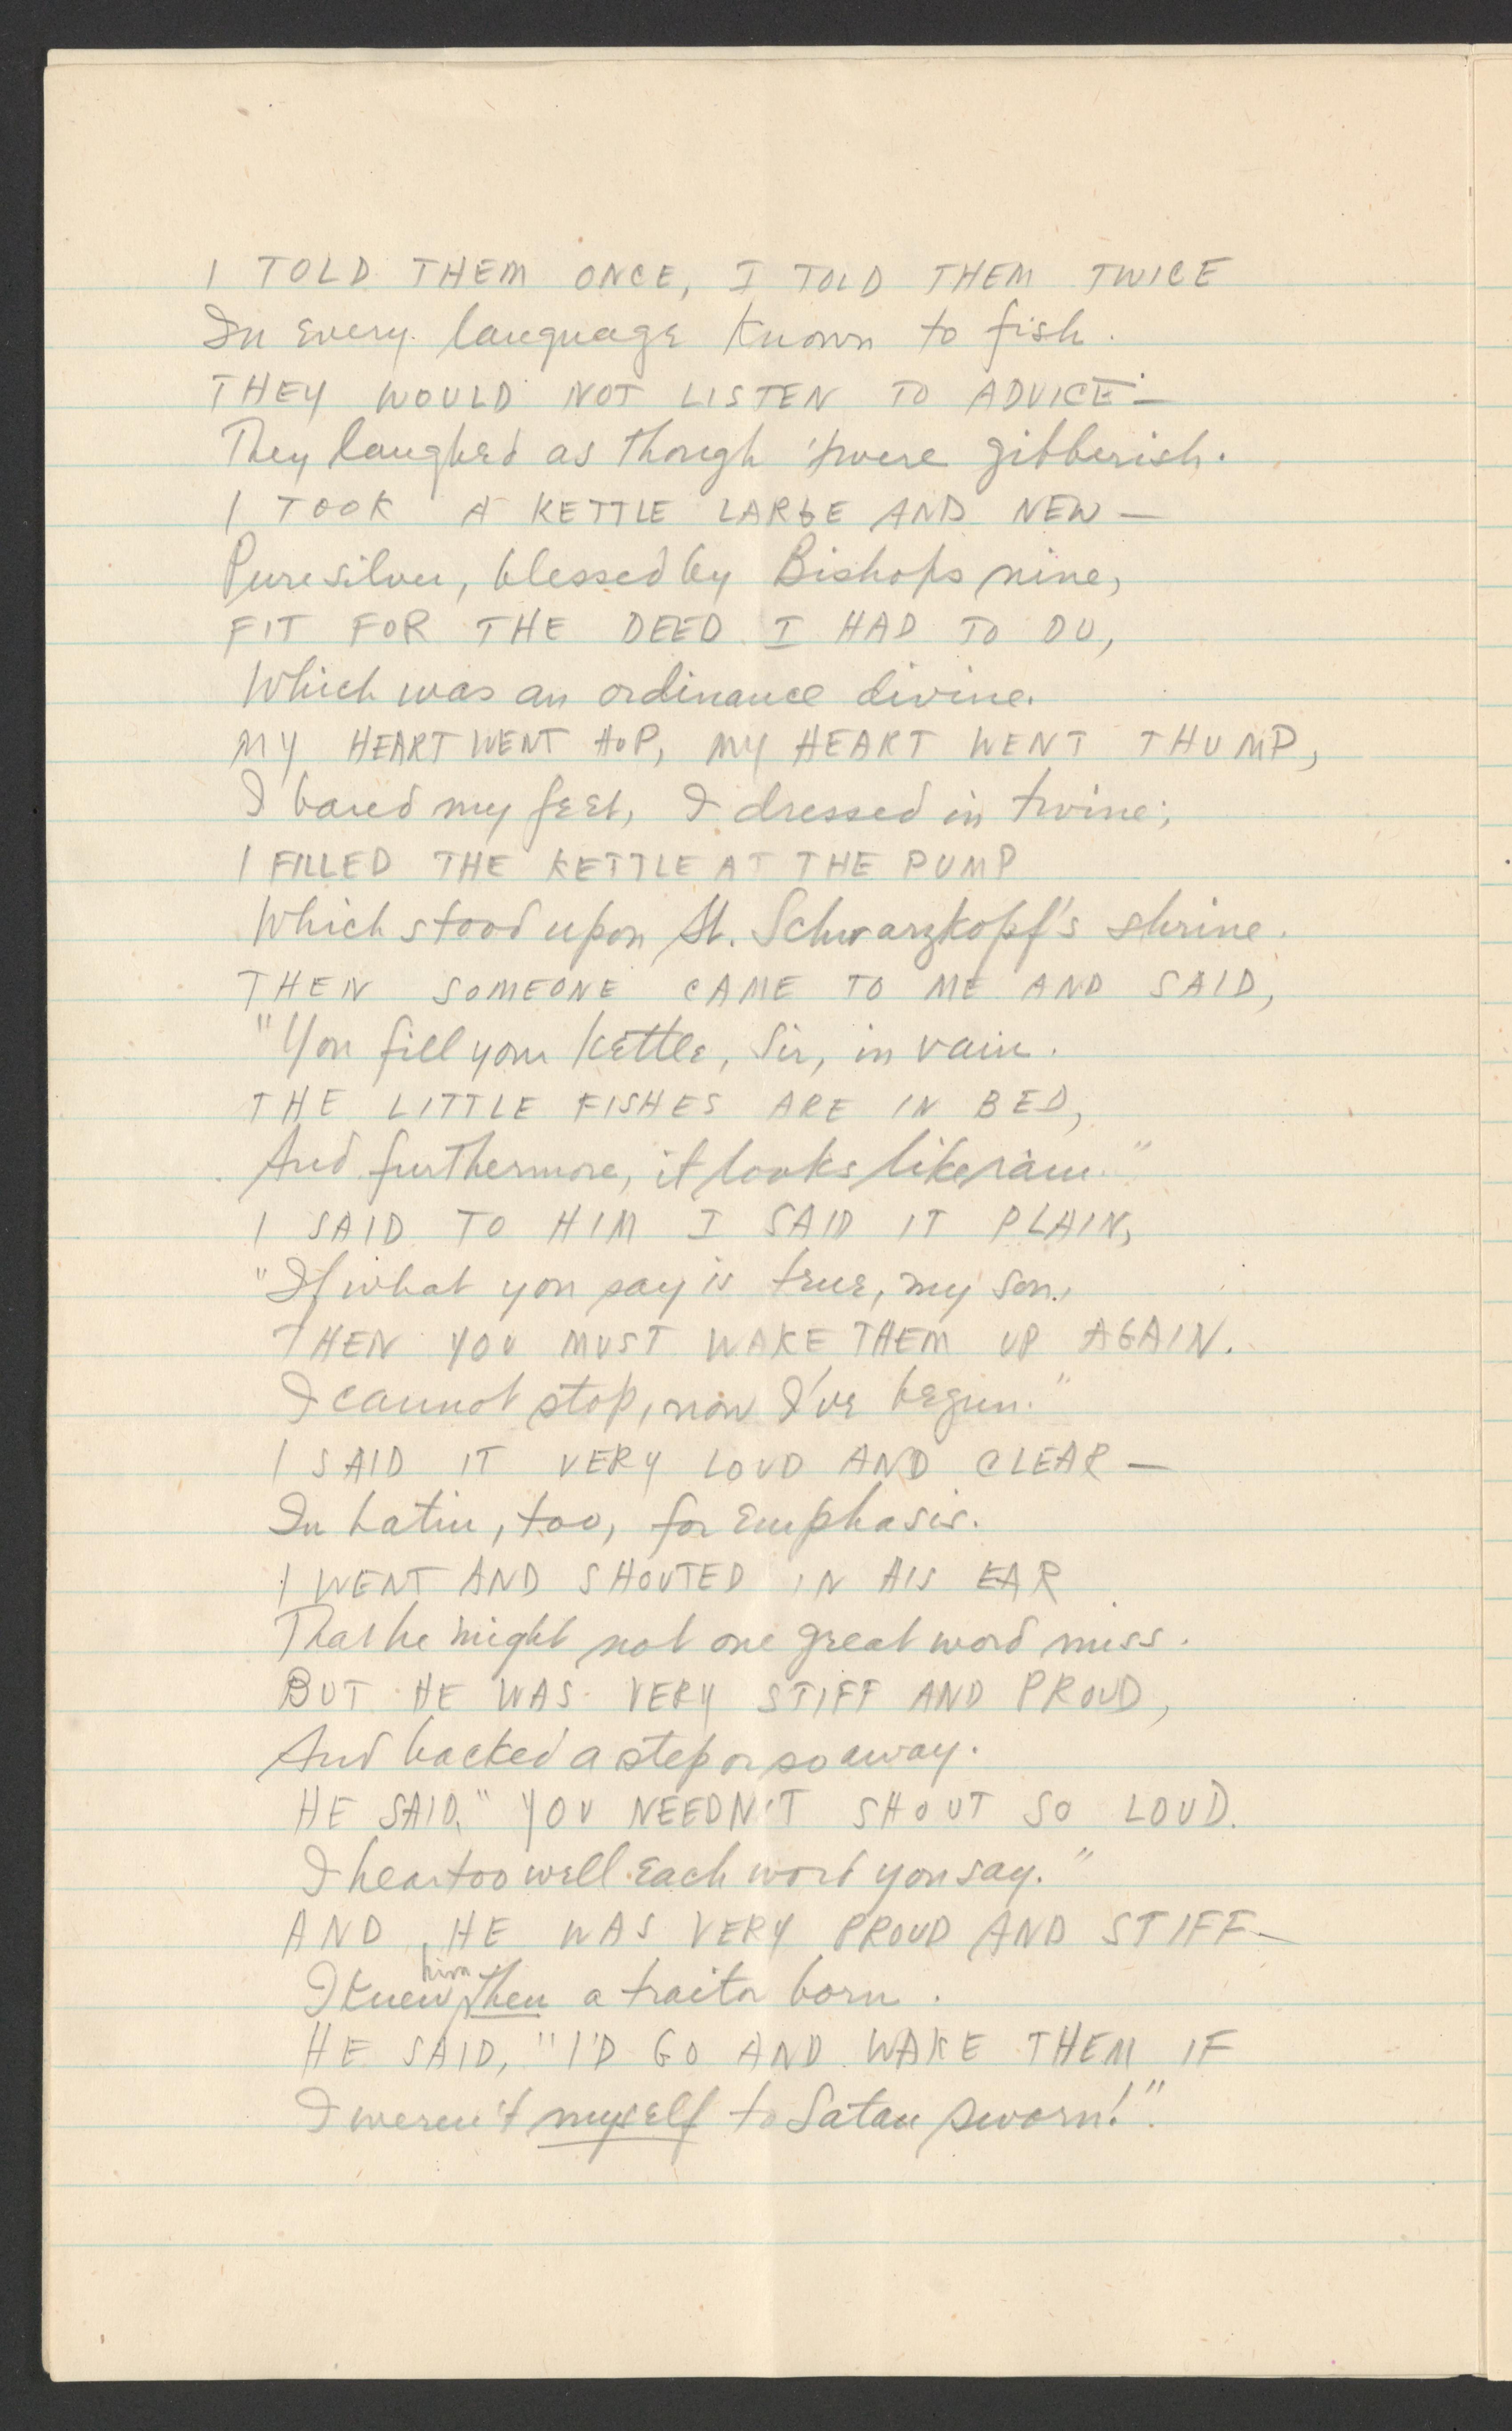 I TOLD THEM ONCE, I TOLD THEM TWICE
In every language known to fish.
THEY WOULD NOT LISTEN TO ADVICE—
They laughed as though 'twere gibberish.
I TOOK A KETTLE LARGE AND NEW—
Pure silver, blessed by Bishops nine,
FIT FOR THE DEED I HAD TO DO,
Which was an ordinance divine.
MY HEART WENT HOP, MY HEART WENT THUMP,
I bared my feet, I dressed in twine;
I FILLED THE KETTLE AT THE PUMP
Which stood upon St. Schwarzkopf's shrine.
THEN SOMEONE CAME TO ME AND SAID,
"You fill your kettle, Sir, in vain.
THE LITTLE FISHES ARE IN BED,
And furthermore, it looks like rain."
I SAID TO HIM I SAID IT PLAIN,
"If what you say is true, my son,
THEN YOU MUST WAKE THEM UP AGAIN.
I cannot stop, now I've begun."
I SAID IT VERY LOUD AND CLEAR—
In Latin, too, for emphasis.
I WENT AND SHOUTED IN HIS EAR
That he might not one great word miss.
BUT HE WAS VERY STIFF AND PROUD,
And backed a step or so away.
HE SAID, "YOU NEEDN'T SHOUT SO LOUD.
I hear too well each word you say."
AND HE WAS VERY PROUD AND STIFF—
I knew him then a traitor born.
HE SAID, "I'D GO AND WAKE THEM IF
I weren't myself to Satan sworn!".